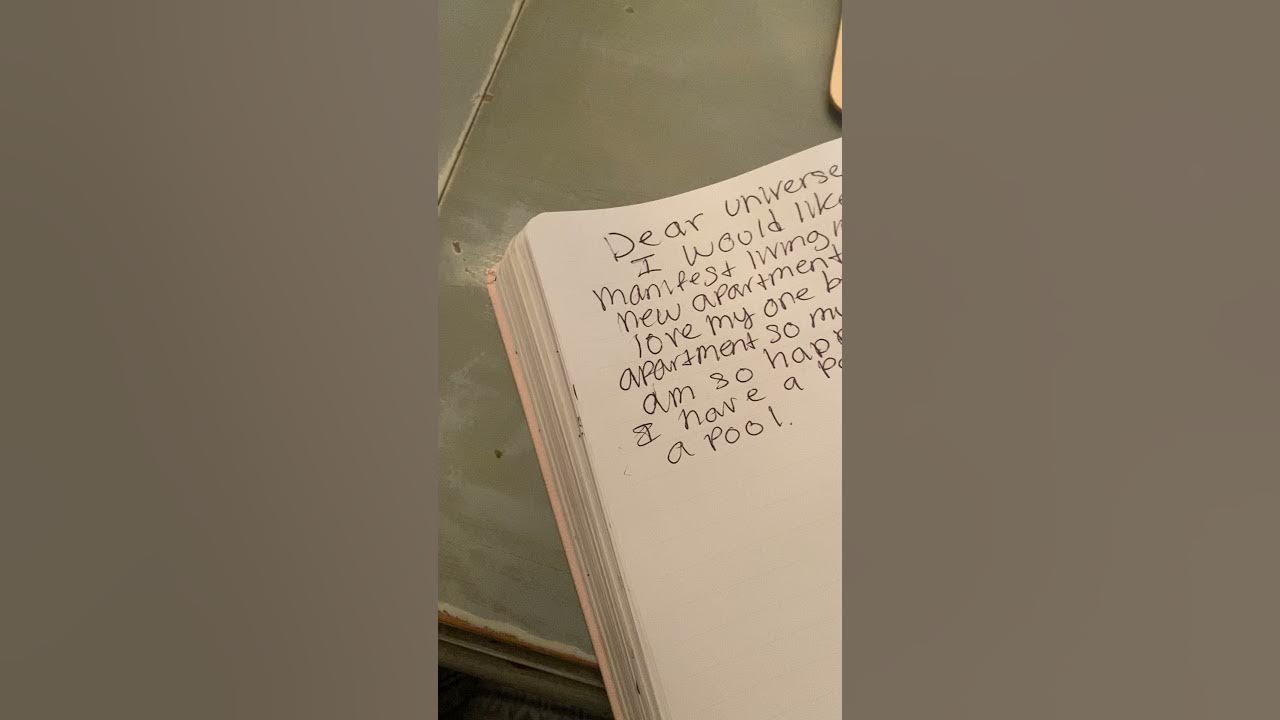 Dear universe
I would like
manifest living
new apartment
love my one
apartment so
am so
I have a
a pool.